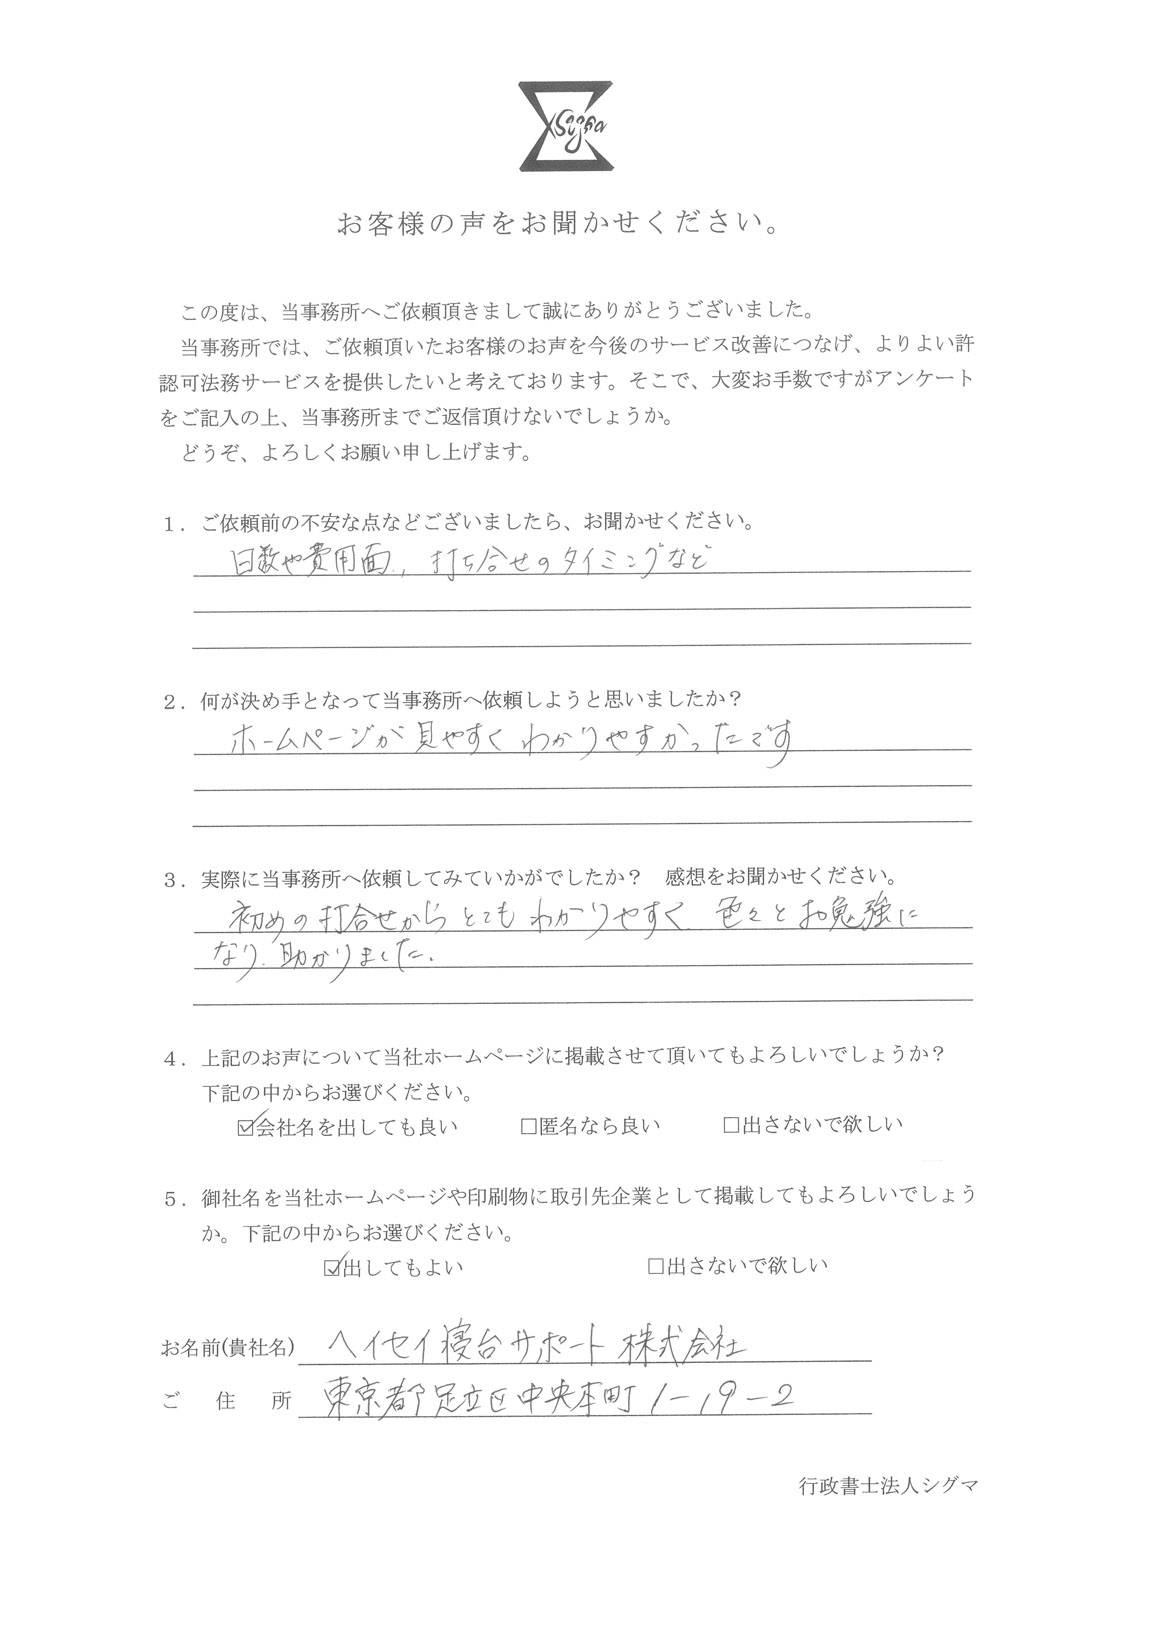 Sigma
お客様の声をお聞かせください。
この度は、当事務所へご依頼頂きまして誠にありがとうございました。
当事務所では、ご依頼頂いたお客様のお声を今後のサービス改善につなげ、よりよい許
認可法務サービスを提供したいと考えております。そこで、大変お手数ですがアンケート
をご記入の上、当事務所までご返信頂けないでしょうか。
どうぞ、よろしくお願い申し上げます。
１．ご依頼前の不安な点などございましたら、お聞かせください。
日数や費用面、打ち合せのタイミングなど
２．何が決め手となって当事務所へ依頼しようと思いましたか？
ホームページが見やすくわかりやすかったです
３．実際に当事務所へ依頼してみていかがでしたか？　感想をお聞かせください。
初めの打合せからとてもわかりやすく、色々とお勉強に
なり、助かりました。
４．上記のお声について当社ホームページに掲載させて頂いてもよろしいでしょうか？
下記の中からお選びください。
☑会社名を出しても良い　□匿名なら良い　□出さないで欲しい
５．御社名を当社ホームページや印刷物に取引先企業として掲載してもよろしいでしょう
か。下記の中からお選びください。
☑出してもよい　□出さないで欲しい
お名前(貴社名)　ヘイセイ寝台サポート 株式会社
ご　住　所　東京都足立区中央本町1-19-2
行政書士法人シグマ